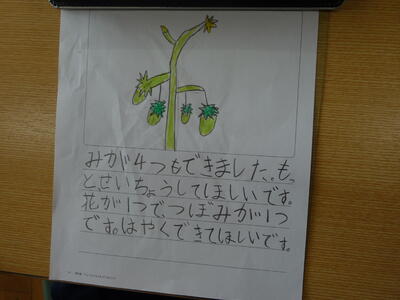 みが4つもできました。もっ
と、せいちょうしてほしいです。
花が1つで、つぼみが1つ
です。はやくできてほしいです。